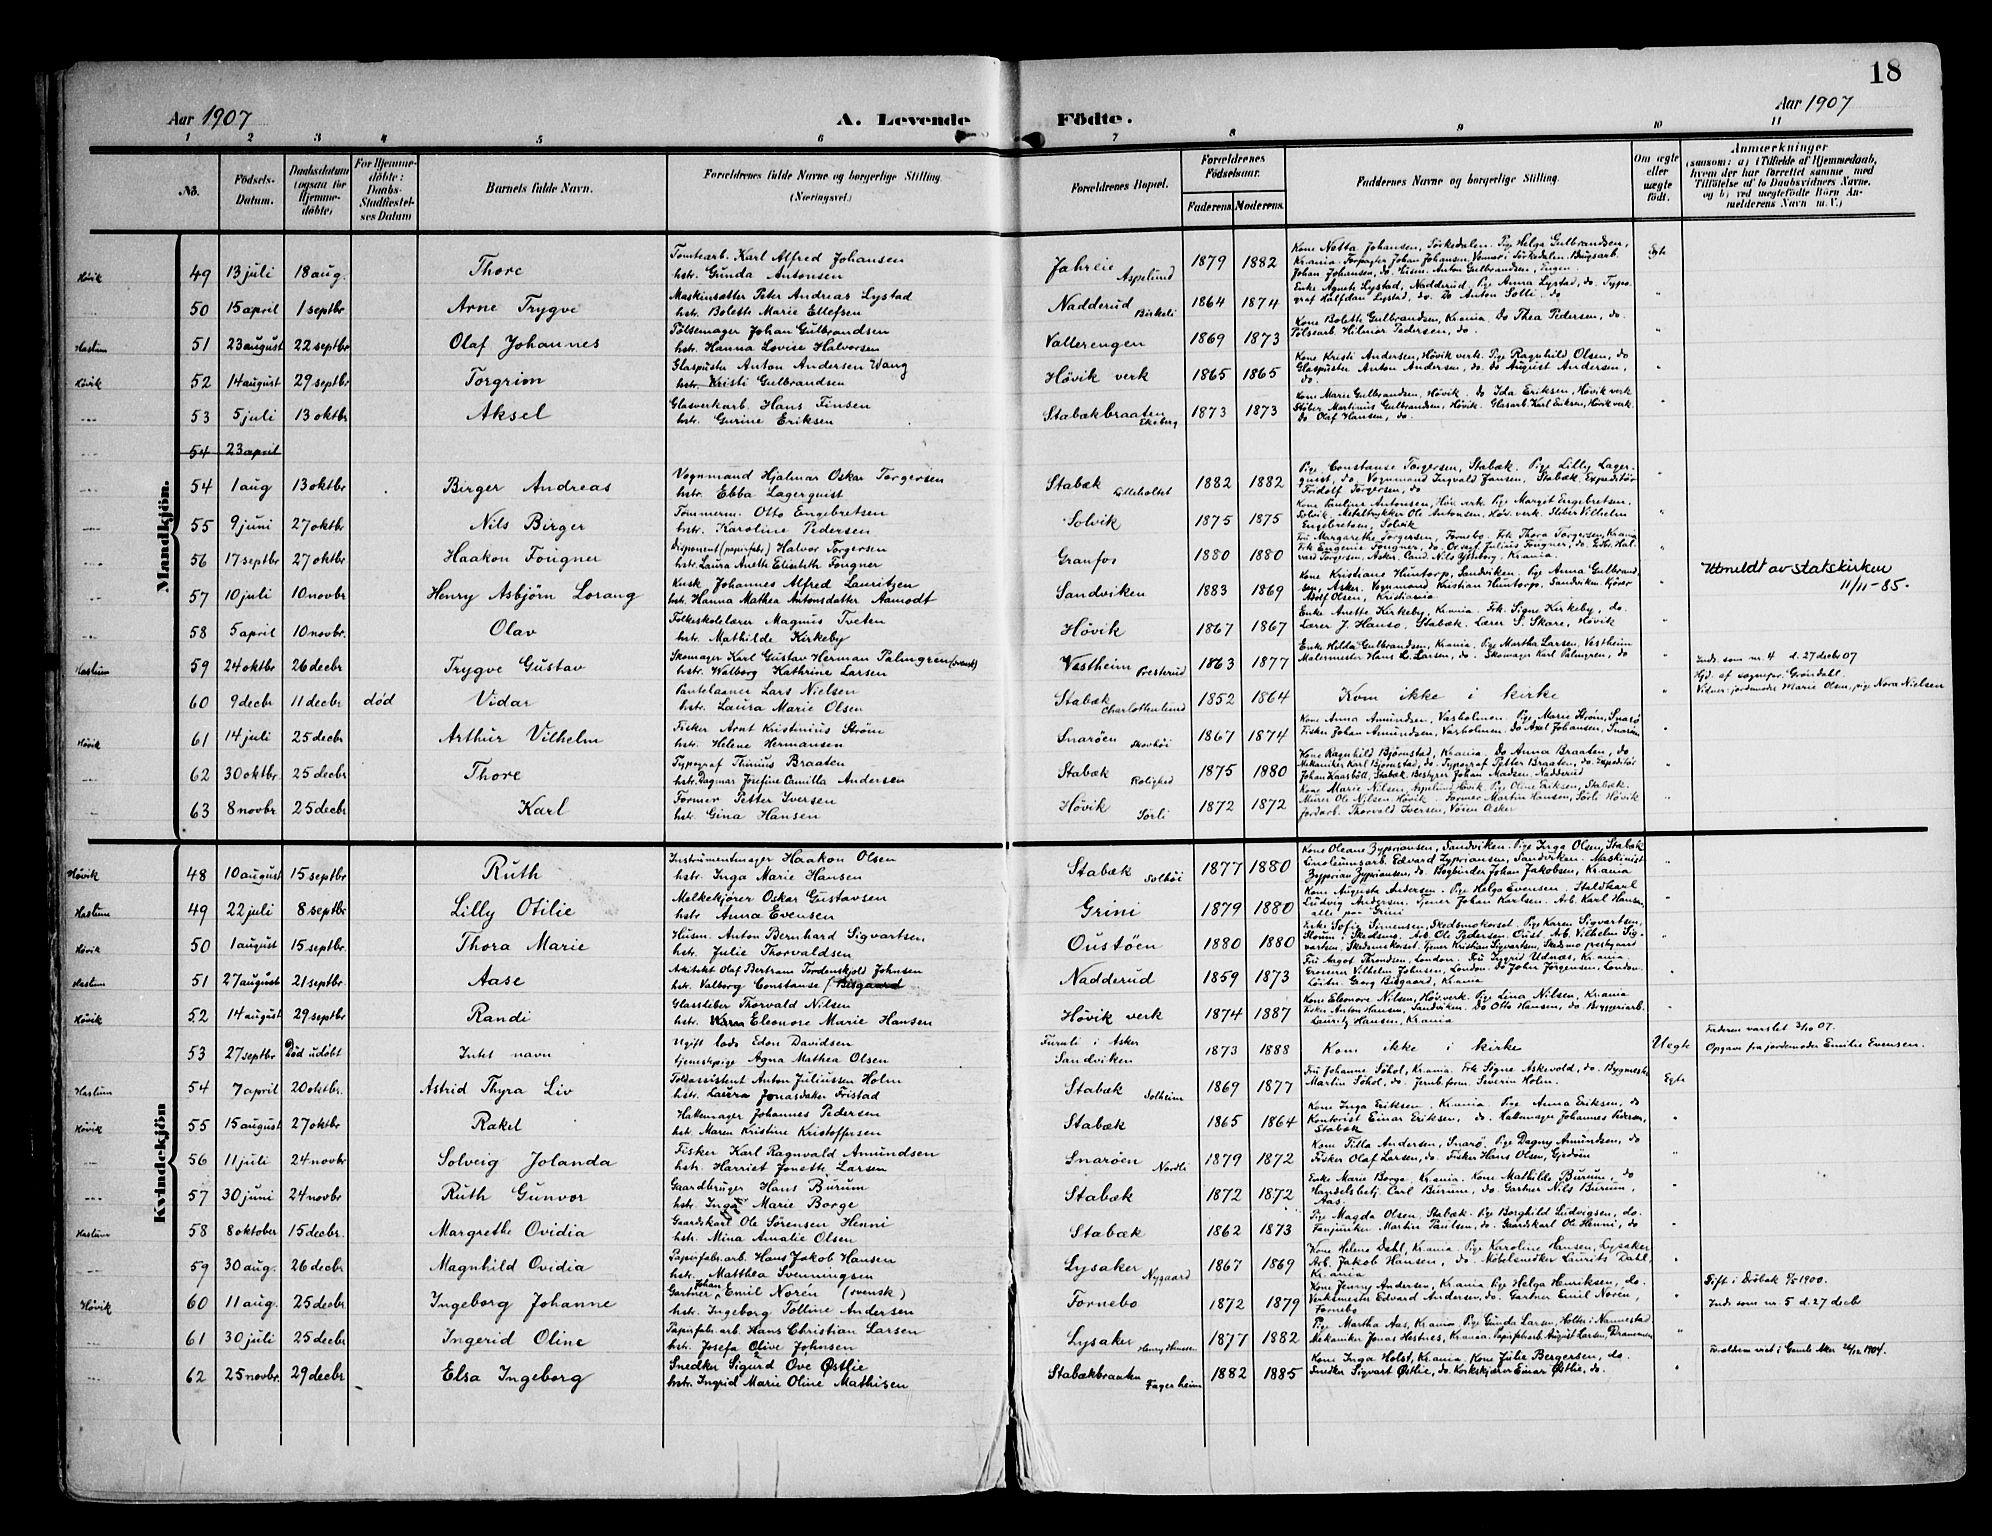 18
Aar 1907 A. Levende Födte. Aar 1907
1 2 3 4 5 6 7 8 9 10 11
No. Födsels-Datum. Daabsdatum (ogsaa for Hjemmedöbte) For Hjemmedöbte: Daabs-Stadfæstelses Datum Barnets fulde Navn. Forældrenes fulde Navne og borgerlige Stilling (Næringsvei.) Forældrenes Bopæl. Forældrenes Födselsaar. Faderens. Moderens. Faddernes Navne og borgerlige Stilling. Om ægte eller uægte födt. Anmærkninger (saasom: a) i Tilfælde af Hjemmedaab, hvem der har forrettet samme, med Tilföielse af to Daabsvidners Navne, og b) ved uægtefödte Börn Anmelderens Navn m. V.)
Mandkjön.
Høvik 49 13 juli 18 aug. Thore Tomtearb. Karl Alfred Johansen hstr. Gunda Antonsen Jahrlie Aspelund 1879 1882 Kone Notta Johansen, Sørkedalen. Pige Helga Gulbrandsen, Krania. Forpagter Johan Johansen, Johan Johansen, do. Husm. Anton Gulbrandsen, Engen Egte
50 15 april 1 septbr Arne Trygve Maskinsætter Peter Andreas Lystad hstr. Bolette Marie Ellefsen Nadderud Birkeli 1864 1874 Enke Agnete Lystad, Nadderud, Pige Anna Lystad, do. Typograf Halfdan Lystad, do. Do Anton Solli, do "
Haslum 51 23 august 22 septbr Olaf Johannes Pølsemager Johan Gulbrandsen hstr. Hanna Lovise Halvorsen Vallerengen 1869 1873 Kone Bolette Gulbrandsen, Krania. Do Thea Pedersen, do. Pølsearb. Hilmar Pedersen, do. "
Høvik 52 14 august 29 septbr Torgrim Glaspuster Anton Andersen Wang hstr. Kristi Gulbrandsen Høvik verk 1865 1865 Kone Kristi Andersen, Høvik verk. Pige Ragnhild Olsen, do Glaspuster Anton Andersen, do. do August Andersen, do. "
53 5 juli 13 oktbr Aksel Glasverkarb. Hans Finsen hstr. Gurine Eriksen Stabækbraaten Ekeberg 1873 1873 Kone Marie Gulbrandsen, Høvik. do Ida Eriksen, Høvik verk Støber Martinus Gulbrandsen, Høvik. Glasarb. Karl Eriksen, Høvik verk. Do Olaf Hansen, do. "
54 23 april
54 1 aug 13 oktbr Birger Andreas Vognmand Hjalmar Oskar Torgersen hstr. Ebba Lagerquist Stabæk Lilleholtet 1882 1882 Pige Constanse Torgersen, Stabæk. Pige Lilly Lagerquist, do Vognmand Ingvald Jansen, Stabæk. Expeditør Fridolf Torgersen, do "
55 9 juni 27 oktbr Nils Birger Tømmerm. Otto Engebretsen hstr. Karoline Pedersen Solvik 1875 1875 Kone Pauline Antonsen, Høv. verk. Pige Margit Engebretsen, Solvik, Metaltrykker Ole Antonsen, Høv. verk. Sliber Vilhelm Engebretsen, Solvik "
56 17 septbr 27 oktbr Haakon Fougner Disponent (papirfabr) Halvor Torgersen hstr. Laura Anette Elisabeth Fougner Granfos 1880 1880 Fru Margarethe Torgersen, Fornebo. Frk Thora Torgersen, Krania Frk Eugenie Fougner, do. Julius Fougner, do. Halvard Torgersen, Asker. Cand. Nils Krania. "
57 10 juli 10 novbr Henry Asbjørn Lorang Kusk Johannes Alfred Lauritzen hstr. Hanna Mathea Antonsdatter Aamodt Sandviken 1883 1869 Kone Kristiane Huntorp, Sandviken. Pige Anna Gulbrandsen, Asker. Vognmand Kristian Huntorp, Sandviken. Kjører Adolf Olsen, Kristiania " Utmeldt av statskirken 11/11-85.
58 5 april 10 novbr. Olav Folkeskolelærer Magnus Tveten hstr. Mathilde Kirkeby Høvik 1867 1867 Enke Anette Kirkeby, Krania. Frk. Signe Kirkeby, do. Lærer J. Hansø, Stabæk. Lærer S. Skare, Høvik "
Haslum 59 24 oktbr 26 decbr Trygve Gustav Skomager Karl Gustav Herman Palmgren (svensk) hstr. Walborg Kathrine Larsen Vestheim Presterud 1863 1877 Enke Hilda Gulbrandsen, Krania. Pige Martha Larsen, Vestheim Malermester Hans L. Larsen, do Skomager Karl Palmgren, do " Inds. som nr. 4 d. 27 decbr 07
60 9 decbr 11 decbr død Vidar Pantelaaner Lars Nielsen hstr. Laura Marie Olsen Stabæk Charlottenlund 1852 1864 Kom ikke i kirke " Hjd. af sognepr. Grøndahl. Vidner: jordemoder Marie Olsen, pige Nora Nielsen
Høvik 61 14 juli 25 decbr Arthur Vilhelm Fisker Arnt Kristinius Strøm hstr. Helene Hermansen Snarøen Skovhøi 1867 1874 Kone Anna Amundsen, Vasholmen. Pige Marie Strøm, Snarø Fisker Johan Amundsen, Vasholmen. Do Axel Johansen, Snarøen "
62 30 oktbr. 25 decbr Thore Typograf Thinius Braaten hstr. Dagmar Josefine Camilla Andersen Stabæk Rolighed 1875 1880 Kone Ragnhild Bjørnstad, Krania. Do Anna Braaten, do Mekaniker Karl Bjørnstad, do. Typograf Petter Braaten, do. Expeditør Johan Kaasbøll, Stabæk. Bestyrer Johan Madsen, Nadderud "
63 8 novbr 25 decbr Karl Former Petter Iversen hstr. Gina Hansen Høvik Sørli 1872 1872 Kone Marie Nilsen, Aspelund Høvik. Pige Oline Eriksen, Stabæk. Murer Ole Nilsen Høvik. Former Martin Hansen, Sørli Høvik Jordarb. Thorvald Iversen, Vøien Asker "
Kvindekjön
Høvik 48 10 august 15 septbr Ruth Instrumentmager Haakon Olsen hstr. Inga Marie Hansen Stabæk Solhøi 1877 1880 Kone Oleane Zypriansen, Sandviken. Pige Inga Olsen, Stabæk Linoleumsarb. Edvard Zypriansen, Sandviken. Maskinist Zyprian Zypriansen, do. Bogbinder Johan Jakobsen, Krania "
Haslum 49 22 juli 8 septbr Lilly Otilie Melkekjører Oskar Gustavsen hstr. Anna Evensen Grini 1879 1880 Kone Augusta Andersen. Pige Helga Evensen. Staldkarl Ludvig Andersen. Tjener Johan Karlsen. Arb. Karl Hansen, alle paa Grini "
Høvik 50 1 august 15 septbr Thora Marie Husm. Anton Bernhard Sigvartsen, hstr. Julie Thorvaldsen Oustøen 1880 1880 Enke Sofie Simensen, Skedsmokorset. Pige Karen Sigvartsen, Skedsmo. Arb. Ole Pedersen. Arb. Vilhelm Sigvartsen, Skedsmokorset. Tjener Kristian Sigvartsen, Skedsmo prestegaard "
Haslum 51 27 august 21 septbr Aase Arkitekt Olaf Bertram Tordenskjold Johnsen hstr. Valborg Constanse Bisgaard Nadderud 1859 1873 Fru Argot Throndsen, London. Fru Ingrid Udnæs, Krania. Grosserer Vilhelm Johnsen, London. do John Jørgensen, London. Løitn. Georg Bisgaard, Krania "
Høvik 52 14 august 29 septbr Randi Glassliber Thorvald Nilsen hstr. Eleonore Marie Hansen Høvik verk 1874 1887 Kone Eleonore Nilsen, Høv. verk. Pige Lina Nilsen, Krania Fisker Anton Hansen, Sandviken. Do Otto Hansen, do Bryggeriarb. Lauritz Hansen, Krania "
53 27 septbr Død udøbt Intet navn Ugift lods Edon Davidsen tjenestepige Agna Mathea Olsen Furuli i Asker Sandviken 1873 1888 Kom ikke i kirke Uegte Faderen varslet 3/10 07. Opgave fra jordemoder Emilie Evensen.
Haslum 54 7 april 20 oktbr. Astrid Thyra Liv Toldassistent Anton Juliussen Holm hstr. Laura Jonasdater Fristad Stabæk Solheim 1869 1877 Fru Johanne Søhol, Krania. Frk Signe Askevold, do. Bygmester Martin Søhol, do. Jernb.form. Severin Holm. Egte
Høvik 55 15 august 27 oktbr Rakel Hattemager Johannes Pedersen hst. Maren Kristine Kristoffersen Stabæk 1865 1864 Kone Inga Eriksen, Krania. Pige Anna Eriksen, do Kontorist Einar Eriksen, do. Hattemager Johannes Pedersen, Stabæk "
56 11 juli 24 novbr Solveig Jolanda Fisker Karl Ragnvald Amundsen hstr. Harriet Jonette Larsen Snarøen Nordli 1879 1872 Kone Tilla Andersen, Snarø. Pige Dagny Amundsen, do Fisker Olaf Larsen, do. Fisker Hans Olsen, "
57 30 juni 24 novbr Ruth Gunvor Gaardbruger Hans Burum hstr. Inga Marie Borge Stabæk 1872 1872 Enke Marie Borge, Krania. Kone Mathilde Burum, do Handelsbetj. Carl Burum, do. Gartner Nils Burum, Aas. "
Haslum 58 8 oktober 15 decbr. Margrethe Ovidia Gaardskarl Ole Sørensen Henni hstr. Mina Amalie Olsen Stabæk 1862 1873 Pige Magda Olsen, Stabæk. Pige Borghild Ludvigsen, do. Fanjunker Martin Paulsen, do. Gaardskarl Ole Henni, do "
59 30 aug. 26 decbr Magnhild Ovidia Papirfabr.arb. Hans Jakob Hansen hstr. Matthea Svenningsen Lysaker Nygaard 1867 1869 Kone Helene Dahl, Krania. Pige Karoline Hansen, Lysaker Arb. Jakob Hansen, do. Møbelsnedker Laurits Dahl, Krania "
Høvik 60 11 aug. 25 decbr Ingeborg Johanne Gartner Johan Emil Noren (svensk) hstr. Ingeborg Tolline Andersen Fornebo 1872 1879 Kone Jenny Andersen, Krania. Pige Helga Henriksen, do. Verksmester Edvard Andersen, do. Gartner Emil Noren, Fornebo " Gift i Drøbak 1900. Inds som nr. 5 d. 27 decbr
61 30 juli 25 decbr Ingerid Oline Papirfabr.arb. Hans Christian Larsen hstr. Josefa Olive Johnsen Lysaker 1877 1882 Pige Martha Aas, Krania. Pige Gunda Larsen, Holter i Nannestad Mekaniker Jonas Hestnes, Krania. Papirfabrarb. August Larsen, Drammen "
62 25 novbr. 29 decbr Elsa Ingeborg Snedker Sigurd Ove Østlie hstr. Ingrid Marie Oline Mathisen Stabækbraaten Fagerheim 1882 1885 Kone Inga Holst, Krania. Kone Julie Bergersen, do. Snedker Sigvart Østlie, do. Korkskjærer Einar Østlie, do. " Forældrene viet i Gamle Aker 1904.